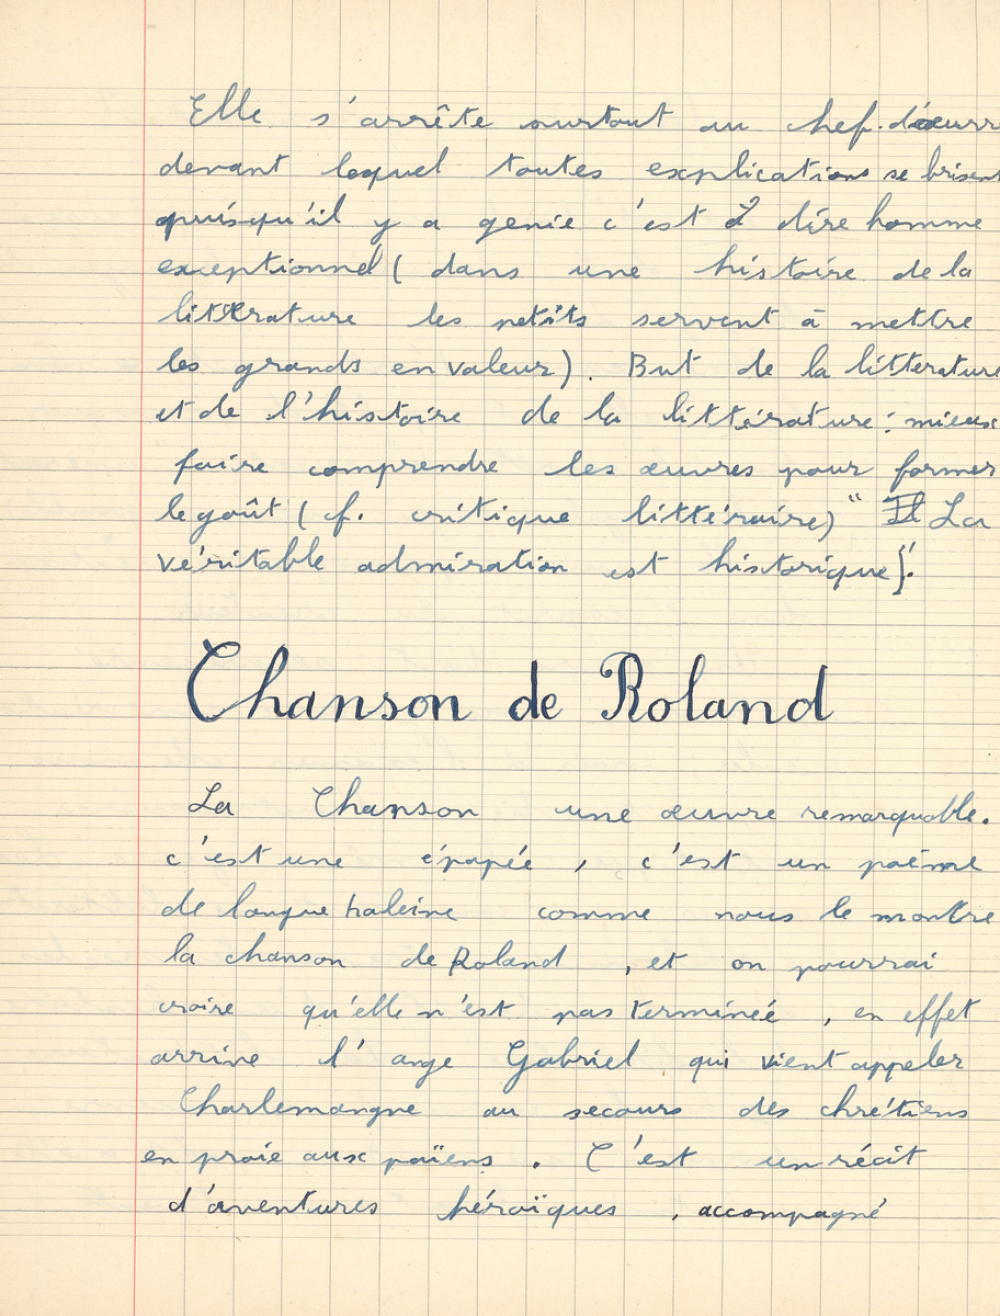 Elle s'arrête surtout au chef. d'œuvre
devant lequel toutes explications se brisent
puisqu'il y a genie c'est à dire homme
exceptionnel ( dans une histoire de la
littérature les petits servent à mettre
les grands en valeur). But de la litterature
et de l'histoire de la littérature : mieux
faire comprendre les œuvres pour former
le goût ( cf. critique littéraire) " Il La
véritable admiration est historique).
Chanson de Roland
La Chanson une œuvre remarquable.
c'est une épopée , c'est un poème
de longue haleine comme nous le montre
la chanson de Roland , et on pourrai
croire qu'elle n'est pas terminée , en effet
arrive l' ange Gabriel qui vient appeler
Charlemangne au secours des chrétiens
en proie aux païens . C'est un récit
d'aventures héroïques , accompagné